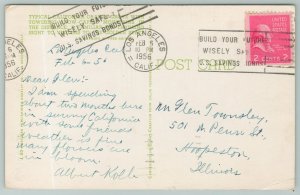 TYPICAL
BUILD YOUR FUTURE
WISELY SAFE
U.S. SAVINGS BONDS
LOS ANGELES
FEB 6
PM
1956
CALIF.
BUILD YOUR FUTURE
WISELY SAFE
U.S. SAVINGS
2 CENTS 2
POST CARD
Los Angeles Cal
Feb 6n 56
Dear Glen:-
I am spending
about two months here
in sunny California
with some friends
weather is fine
many flowers are
in bloom
Albert
Mr Glen Townsley
501 N. Penn St.
Hoopeston
Illinois